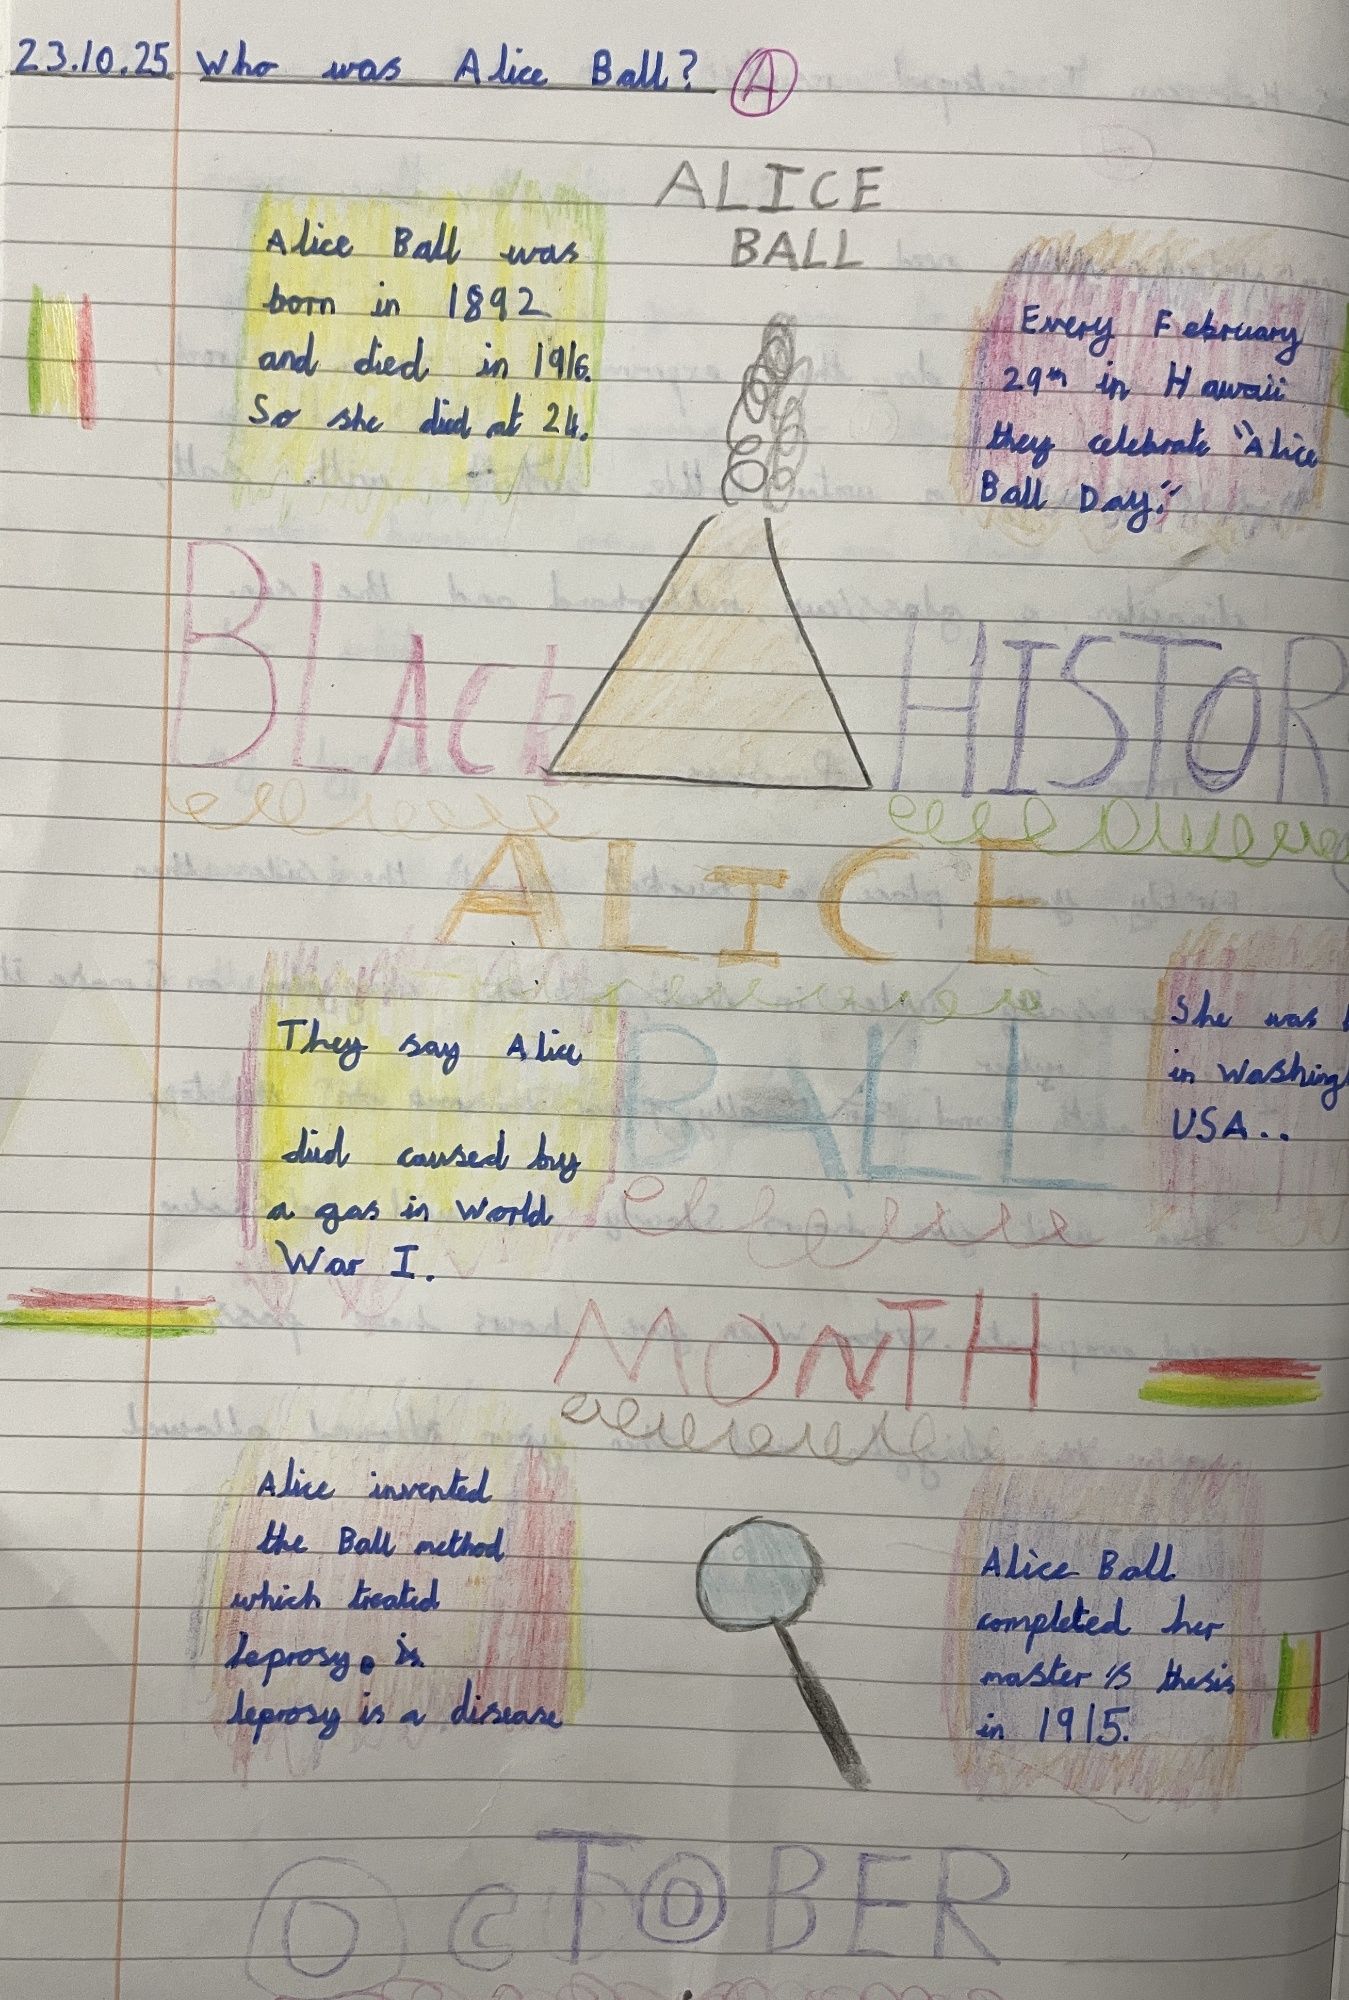 23.10.25 Who was Alice Ball? A
ALICE
BALL
Alice Ball was
born in 1892
and died in 1916.
So she died at 24.
Every February
29th in Hawaii
they celebrate "Alice
Ball Day."
BLACK HISTOR
ALICE
BALL
They say Alice
died caused by
a gas in World
War I.
She was
in Washing
USA..
MONTH
Alice invented
the Ball method
which treated
leprosy. is
leprosy is a disease
Alice Ball
completed her
master's thesis
in 1915.
OCTOBER